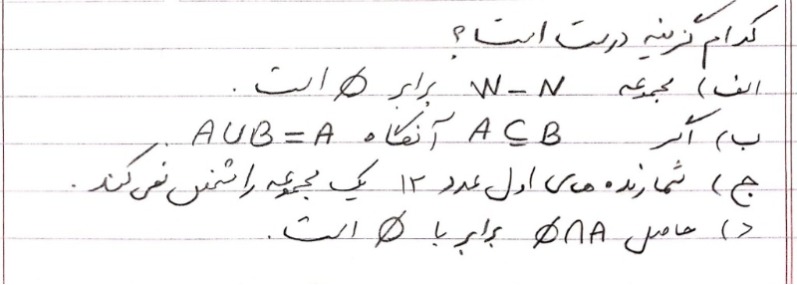 کدام گزینه درست است؟
الف) مجموعه W - N برابر ∅ است.
ب) اگر A ⊆ B آنگاه A∪B = A
ج) شمارنده های اول عدد ۱۲ یک مجموعه را مشخص نمی کند.
د) حاصل ∅∩A برابر با ∅ است.